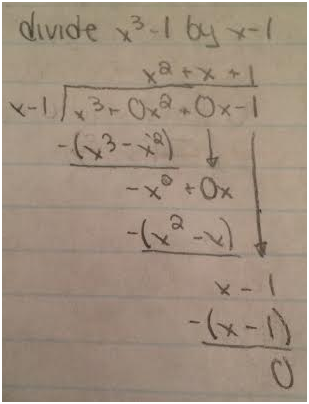 divide x³-1 by x-1
x² + x + 1
x-1 ) x³ + 0x² + 0x - 1
-(x³ - x²)
- x² + 0x
-(x² - x)
x - 1
-(x - 1)
0